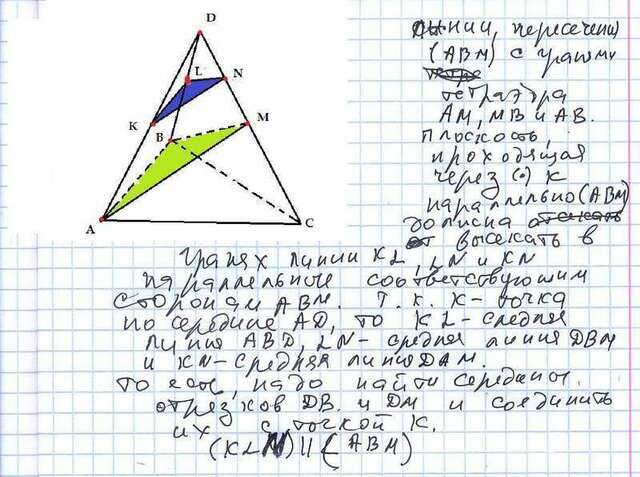 D
L
N
K
M
B
A
C
линии, пересечения
(ABM) с гранями
тетраэдра
AM, MB и AB.
плоскость,
проходящая
через (•) K
параллельно (ABM)
должна
высекать в
гранях линии KL, LN и KN
параллельные соответствующим
сторонам ABM. Т.к. K - точка
по середине AD, то KL - средняя
линия ABD, LN - средняя линия DBM
и KN - средняя линия DAM.
то есть, надо найти середины
отрезков DB. и DM и соединить
их с точкой K.
(KLN) || (ABM)